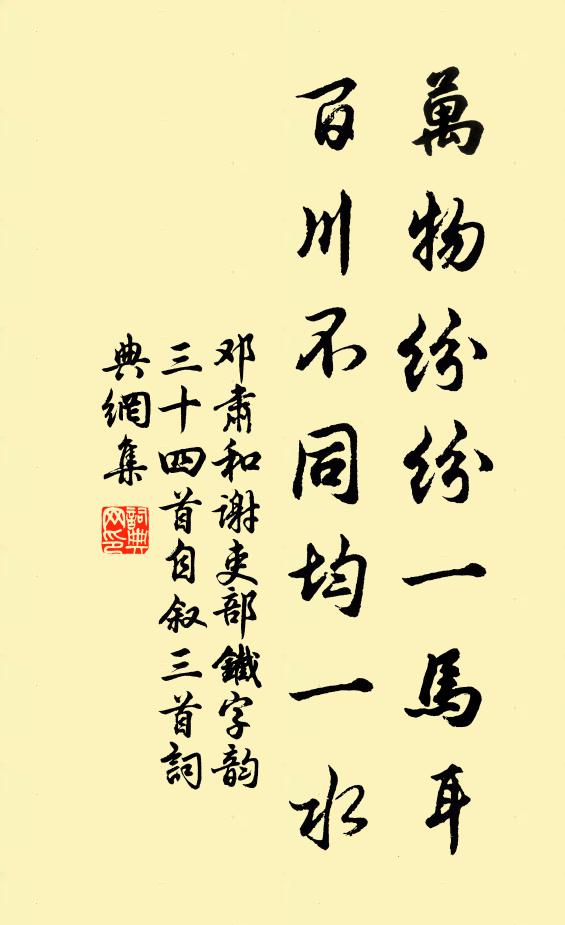 萬物紛紛一馬耳
百川不同均一水
邓肅和谢吏部鐵字韵
三十四首自叙三首詞
典網集
詞典
网印